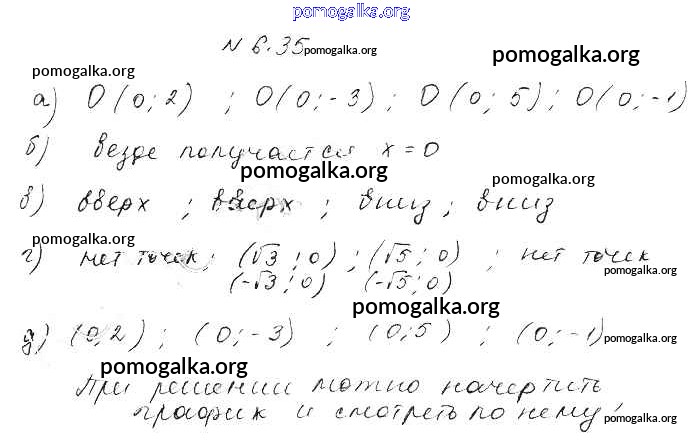 pomogalka.org
N 6.35 pomogalka.org
pomogalka.org
pomogalka.org
а) О (0; 2) ; О (0; -3) ; О (0; 5) ; О (0; -1)
б) везде получается x = 0
pomogalka.org
pomogalka.org
в) вверх ; вверх ; вниз ; вниз
pomogalka.org
г) нет точек; (√3 ; 0) ; (√5 ; 0) ; нет точек
(-√3 ; 0) (-√5 ; 0)
pomogalka.org
pomogalka.org
д) (0; 2) ; (0; -3) ; (0; 5) ; (0; -1)
pomogalka.org
pomogalka.org
При решении можно начертить
график и смотреть по нему!
pomogalka.org